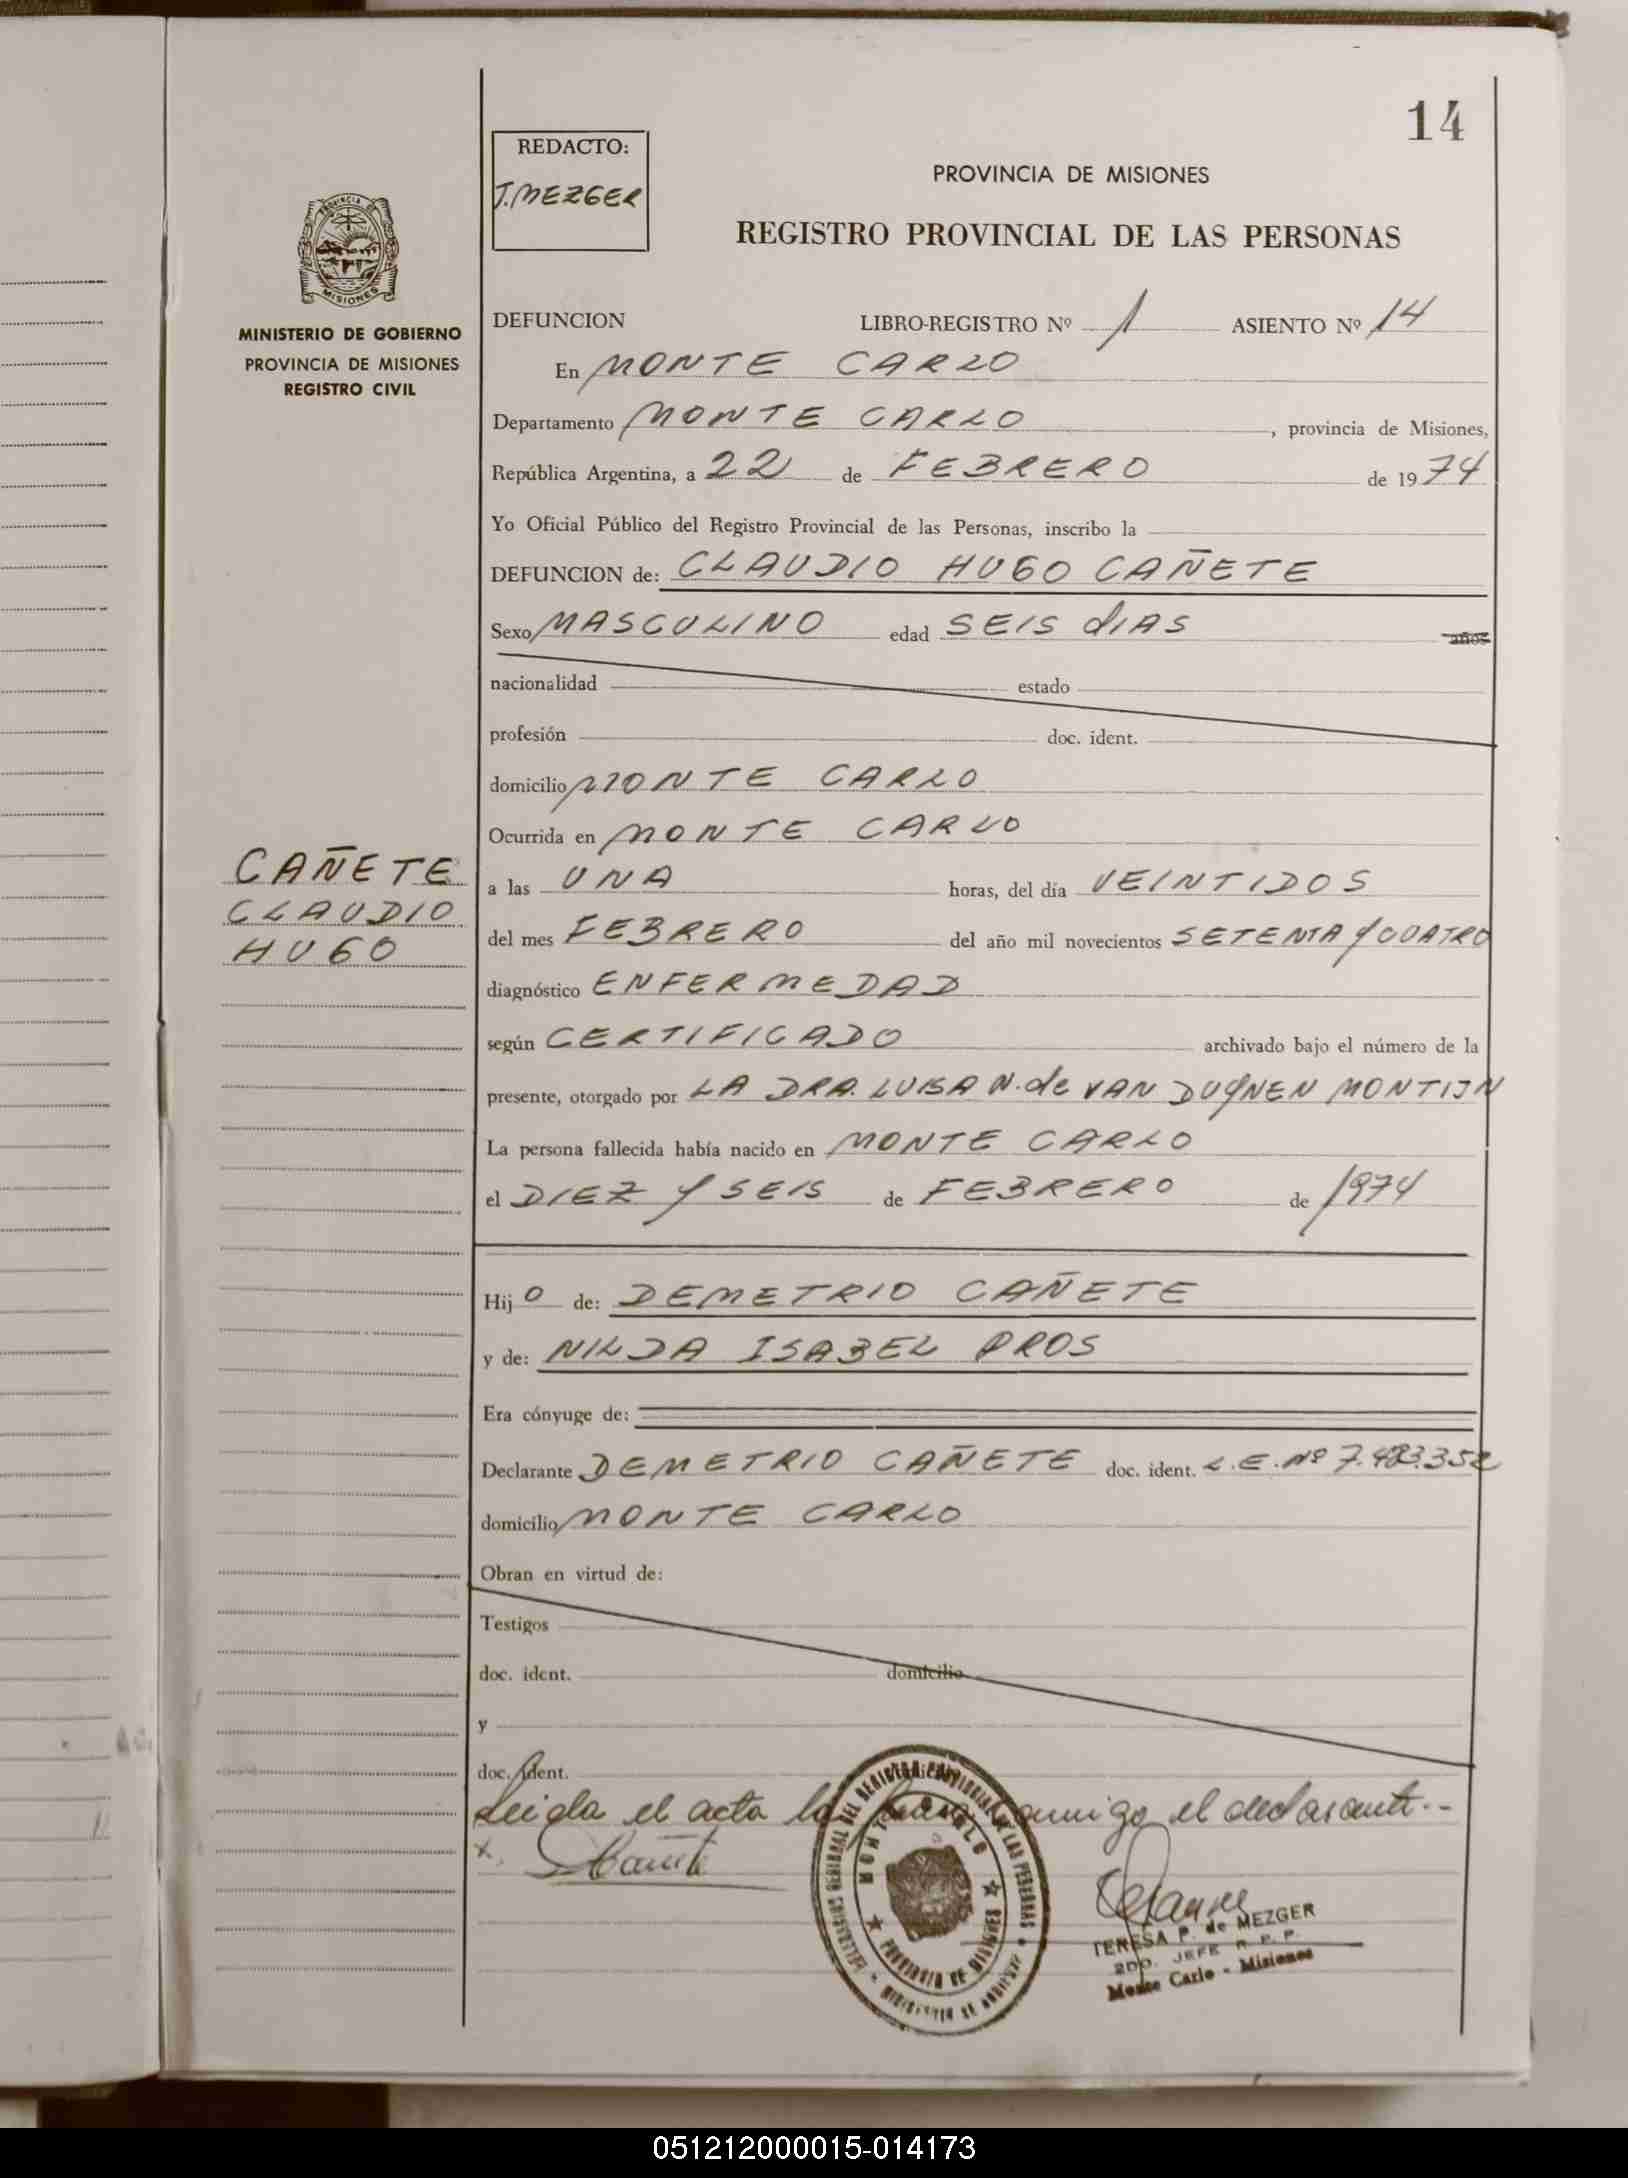 14
REDACTO:
T. MEZGER
PROVINCIA DE MISIONES
REGISTRO PROVINCIAL DE LAS PERSONAS
PROVINCIA DE
MISIONES
MINISTERIO DE GOBIERNO
PROVINCIA DE MISIONES
REGISTRO CIVIL
DEFUNCION LIBRO-REGISTRO Nº 1 ASIENTO Nº 14
En MONTE CARLO
Departamento MONTE CARLO, provincia de Misiones,
República Argentina, a 22 de FEBRERO de 1974
Yo Oficial Público del Registro Provincial de las Personas, inscribo la
DEFUNCION de: CLAUDIO HUGO CAÑETE
Sexo MASCULINO edad SEIS dIAS años
nacionalidad estado
profesión doc. ident.
domicilio MONTE CARLO
Ocurrida en MONTE CARLO
a las UNA horas, del día VEINTIDOS
del mes FEBRERO del año mil novecientos SETENTA Y CUATRO
diagnóstico ENFERMEDAD
según CERTIFICADO archivado bajo el número de la
presente, otorgado por LA DRA. LUISA N. de VAN DUYNEN MONTIJN
La persona fallecida había nacido en MONTE CARLO
el DIEZ Y SEIS de FEBRERO de 1974
CAÑETE
CLAUDIO
HUGO
Hijo de: DEMETRIO CAÑETE
y de: NILDA ISABEL PROS
Era cónyuge de:
Declarante DEMETRIO CAÑETE doc. ident. L.E. Nº 7.483.352
domicilio MONTE CARLO
Obran en virtud de:
Testigos
doc. ident. domicilio
y
doc. ident.
Leida el acta la firma conmigo el declarante.--
x. Cañete
MONTE CARLO
PROVINCIA DE MISIONES
TERESA P. de MEZGER
2DO. JEFE R. P. P.
Monte Carlo - Misiones
051212000015-014173